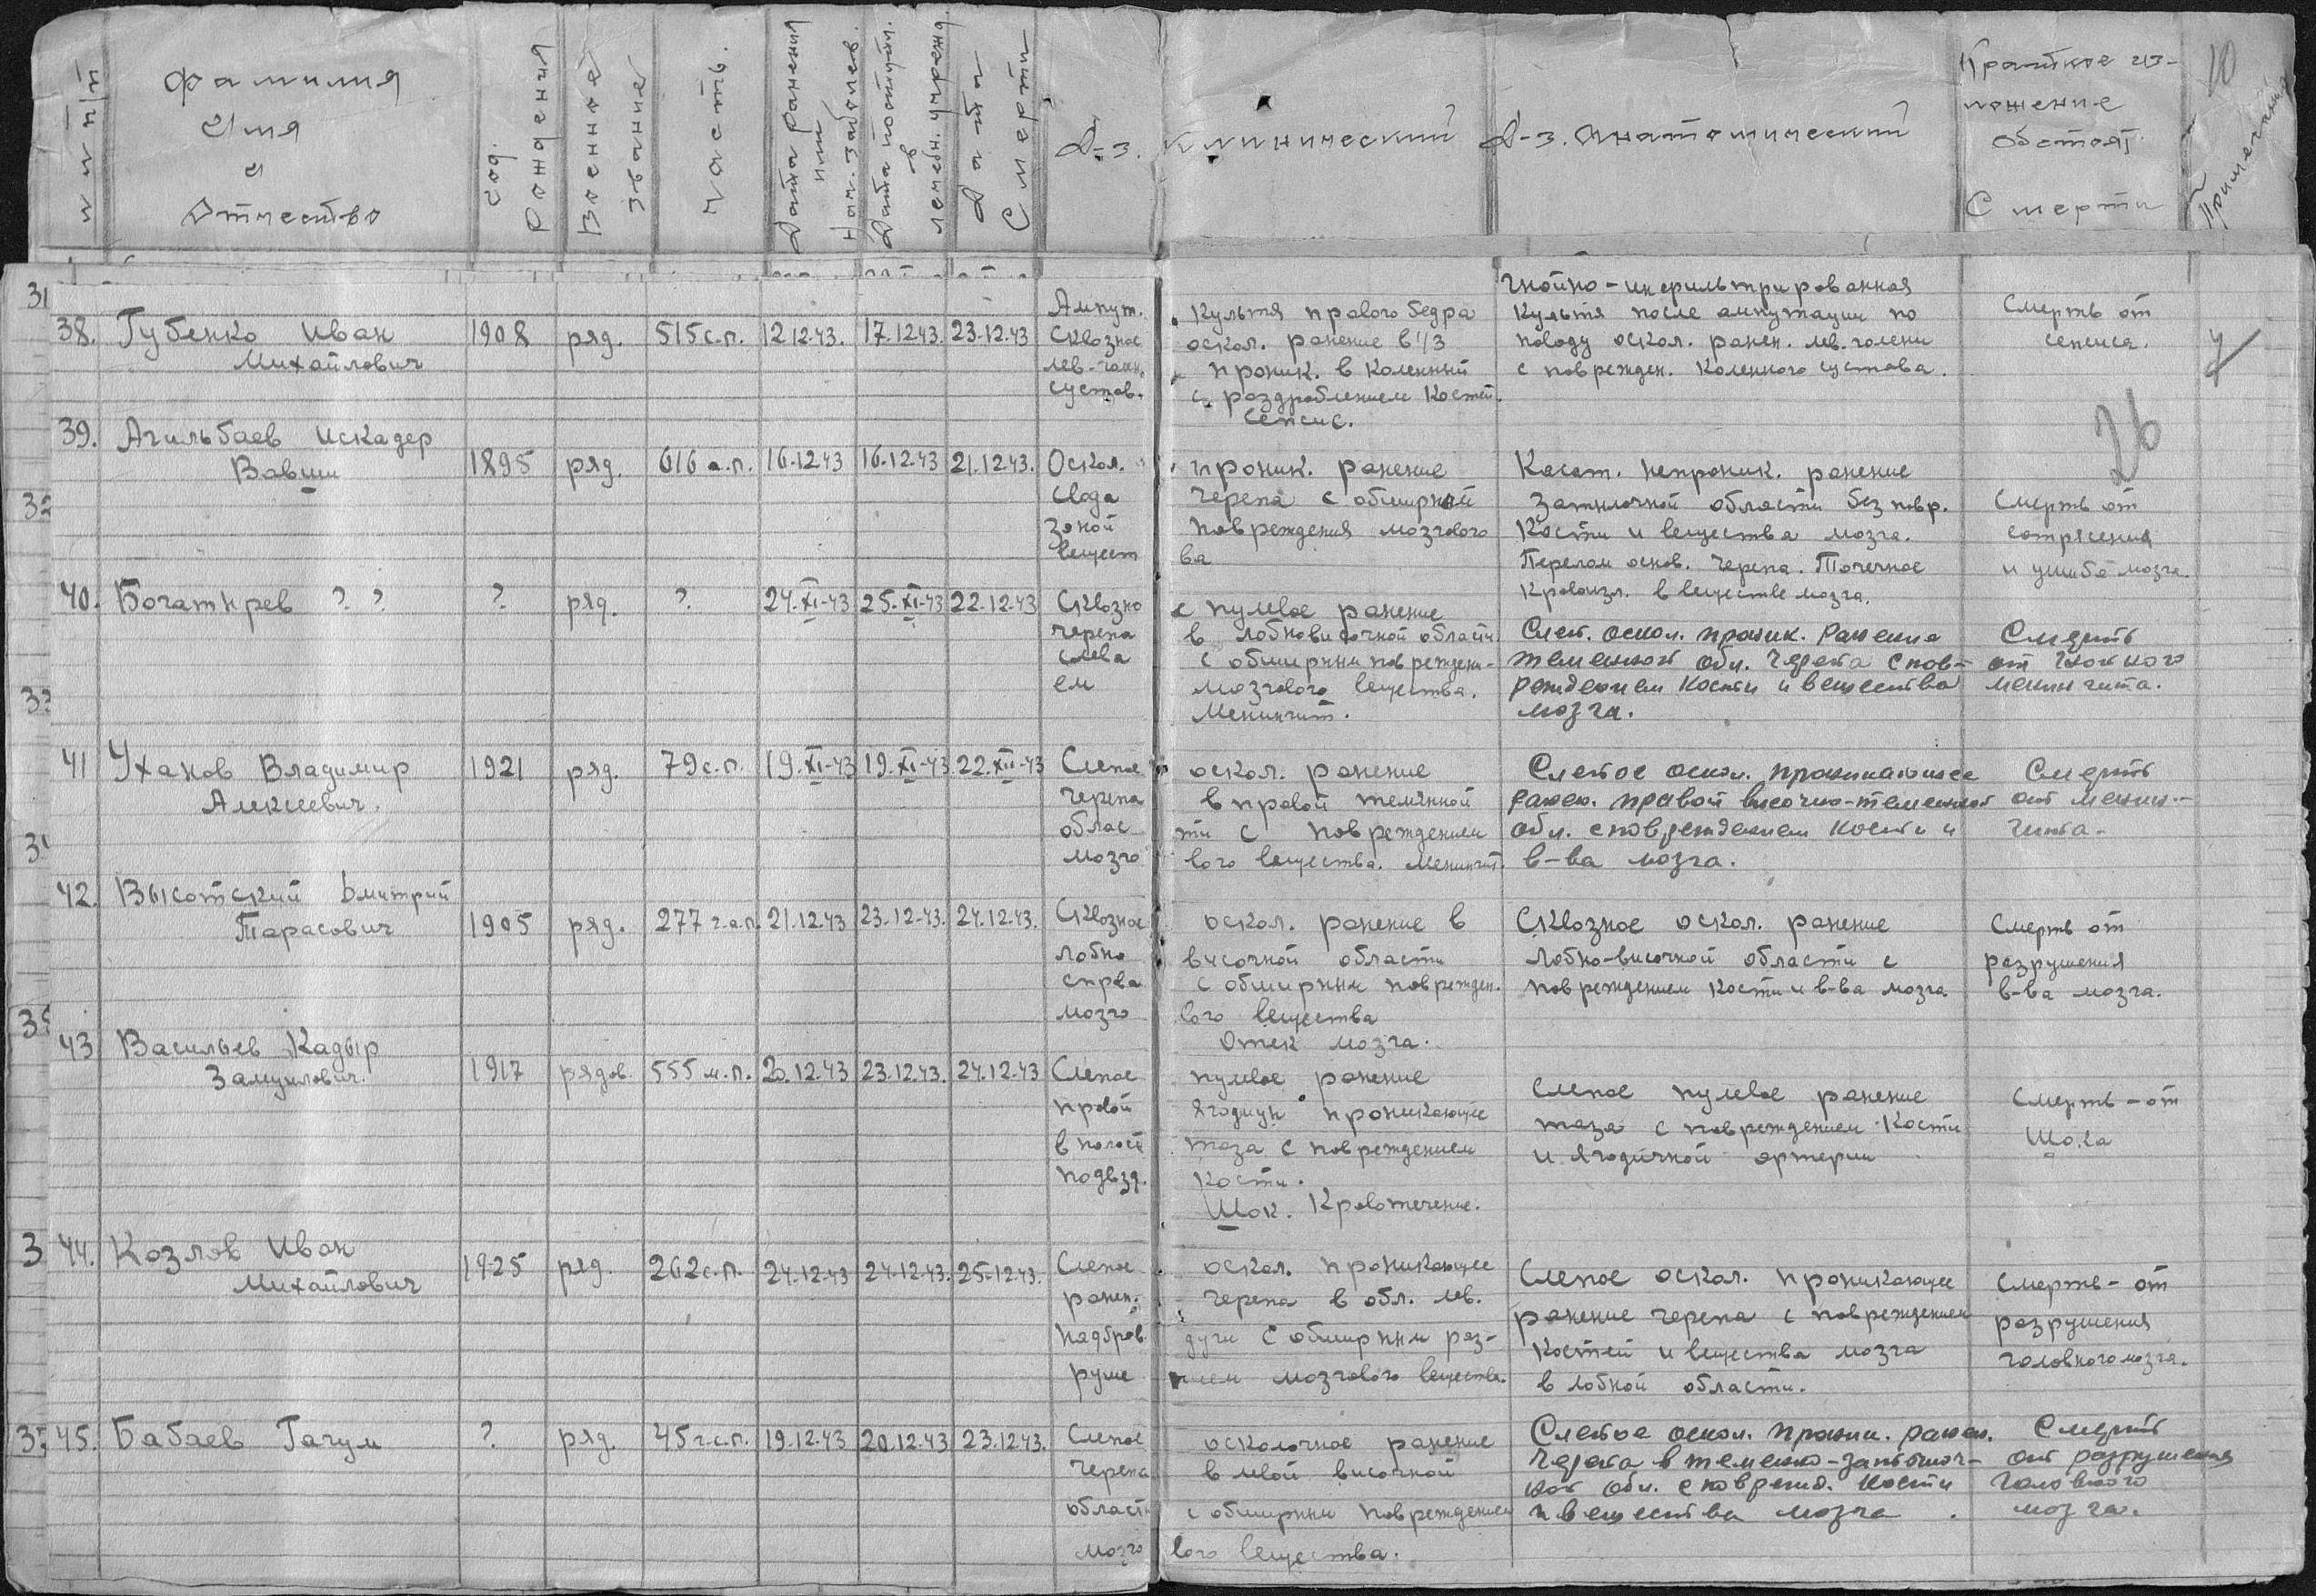 №№ п/п
Фамилия
Имя
и
Отчество
Год.
Рождения
Военное
звание
Часть.
Дата ранения
или
нач. заболев.
Дата поступл.
в
лечебн. учрежд.
Дата
Смерти
Д-з. Клинический
Д-з. Анатомический
Краткое из-
ложение
обстоят.
Смерти
Примечания
10
38. Губенко Иван
Михайлович
1908 ряд. 515 с.п. 12.12.43. 17.12.43. 23.12.43
Ампут. Культя правого бедра
Сквозное оскол. ранение в 1/3
лев. голен. проник. в коленный
сустав. с раздроблением костей.
Сепсис.
Гнойно-инфильтрированная
культя после ампутации по
поводу оскол. ранен. лев. голени
с поврежден. коленного сустава.
Смерть от
сепсиса.
26
39. Агильбаев Искадер
Вавши
1895 ряд. 616 а.п. 16.12.43 16.12.43 21.12.43.
Оскол. проник. ранение
свода черепа с обширной
зоной повреждения мозгового
вещест ва
Касат. непроник. ранение
затылочной области без повр.
кости и вещества мозга.
Перелом основ. черепа. Точечное
кровоизл. в веществе мозга.
Смерть от
сотрясения
и ушиба мозга.
40. Богатырев ? ?
? ряд. ? 24.XI-43 25.XI-43 22.12.43
Сквозно е пулевое ранение
черепа в лобновисочной области
слева с обширным поврежден-
ем мозгового вещества.
Менингит.
Слеп. оскол. проник. ранение
теменной обл. черепа с пов-
реждением кости и вещества
мозга.
Смерть
от гнойного
менингита.
41 Уханов Владимир
Алексеевич.
1921 ряд. 79 с.п. 19.XI-43 19.XI-43 22.XII-43
Слепое оскол. ранение
черепа в правой теменной
облас ти с повреждением
мозго вого вещества. Менингит.
Слепое оскол. проникающее
ранен. правой височно-теменной
обл. с повреждением кости и
в-ва мозга.
Смерть
от менин-
гита.
42. Высотский Дмитрий
Тарасович
1905 ряд. 277 г.а.п. 21.12.43 23.12.43. 24.12.43.
Сквозное оскол. ранение в
лобно височной области
справа с обширным поврежден.
мозго вого вещества
Отек мозга.
Сквозное оскол. ранение
лобно-височной области с
повреждением кости и в-ва мозга
Смерть от
разрушения
в-ва мозга.
43 Васильев Кадыр
Замуилович.
1917 рядов. 555 м.п. 20.12.43 23.12.43. 24.12.43
Слепое пулевое ранение
правой ягодицы проникающее
в полость таза с повреждением
подвзд. кости.
Шок. Кровотечение.
Слепое пулевое ранение
таза с повреждением кости
и ягодичной артерии
Смерть - от
шока
44. Козлов Иван
Михайлович
1925 ряд. 262 с.п. 24.12.43 24.12.43. 25.12.43.
Слепое оскол. проникающее
ранен. черепа в обл. лев.
надбров. дуги с обширным раз-
руше нием мозгового вещества.
Слепое оскол. проникающее
ранение черепа с повреждением
костей и вещества мозга
в лобной области.
Смерть - от
разрушения
головного мозга.
45. Бабаев Гагум
? ряд. 45 г.с.п. 19.12.43 20.12.43 23.12.43.
Слепое осколочное ранение
черепа в левой височной
област с обширным повреждением
мозго вого вещества.
Слепое оскол. проник. ранен.
черепа в темено-затылоч-
ной обл. с поврежд. кости
и вещества мозга.
Смерть
от разрушения
головного
мозга.